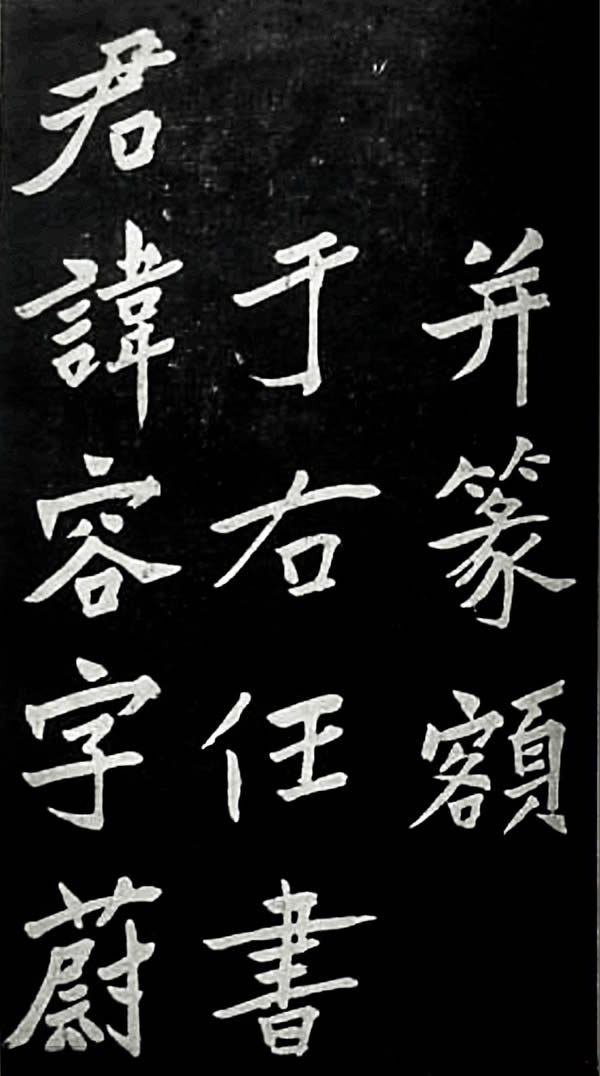 并篆額
于右任書
君諱容字蔚